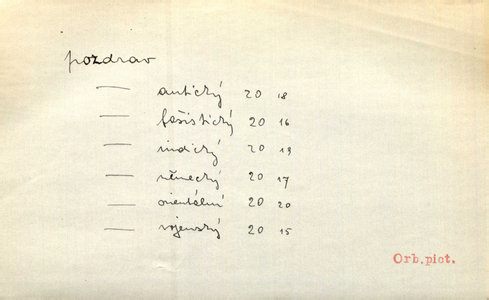 pozdrav
— antický 20 18
— fašistický 20 16
— indický 20 19
— německý 20 17
— orientální 20 20
— vojenský 20 15
Orb.pict.